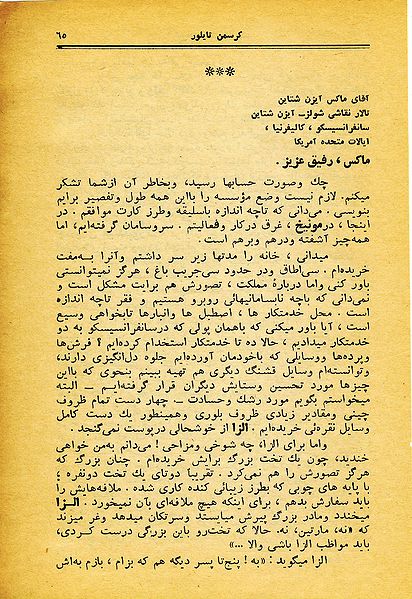 ۶۵ کرسمن تایلور
***
آقای ماکس آیزن شتاین
تالار نقاشی شولزـ آیزن شتاین
سانفرانسیسکو ، کالیفرنیا ،
ایالات متحده آمریکا
ماکس ، رفیق عزیز .
چك وصورت حسابها رسید، وبخاطر آن ازشما تشکر
میکنم. لازم نیست وضع مؤسسه را بااین همه طول وتفصیر برایم
بنویسی . میدانی که تاچه اندازه باسلیقه وطرز کارت موافقم . در
اینجا ، درمونیخ ، غرق درکار وفعالیتم . سروسامان گرفته‌ایم، اما
همه‌چیز آشفته ودرهم وبرهم است .
میدانی ، خانه را مدتها زیر سر داشتم وآنرا بـه‌مفت
خریده‌ام . سی‌اطاق ودر حدود سی‌جریب باغ ، هرگز نمیتوانستی
باور کنی واما دربارهٔ مملکت ، تصورش هم برایت مشکل است و
نمی‌دانی که باچه نابسامانیهائی روبرو هستیم و فقر تاچه اندازه
است . محل خدمتکار ها ، اصطبل ها وانبارها تابخواهی وسیع
است ، آیا باور میکنی که باهمان پولی که درسانفرانسیسکو به دو
خدمتکار میدادیم ، حالا ده تا خدمتکار استخدام کرده‌ایم ؟ فرش‌ها
وپرده‌ها ووسایلی که باخودمان آورده‌ایم جلوه دل‌انگیزی دارند،
وتوانسته‌ام وسایل قشنگ دیگری هم تهیه ببینم بنحوی که بااین
چیزها مورد تحسین وستایش دیگران قرار گرفته‌ایـم ــ البته
میخواستم بگویم مورد رشك وحسادت ــ چهار دست تمام ظروف
چینی ومقادیر زیادی ظروف بلوری وهمینطور یك دست کامل
وسایل نقره‌ئی خریده‌ایم . الزا از خوشحالی درپوست نمی‌گنجد .
واما برای الزا، چه شوخی ومزاحی ! می‌دانم به‌من خواهی
خندید، چون یك تخت بزرگ برایش خریده‌ام . چنان بزرگ که
هرگز تصورش را هم نمی‌کرد . تقریبا دوتای یك تخت دونفره ،
با پایه های چوبی که بطرز زیبائی کنده کاری شده . ملافه‌هایش را
باید سفارش بدهم ، برای اینکه هیچ ملافه‌ای بآن نمیخورد . الـزا
میخندد ومادر بزرگ پیرش میایستد وسرتکان میدهد وغر میزند
که «نه، مارتین، نه. حالا که تخت‌رو باین بزرگی درست کـردی،
باید مواظب الزا باشی والا ...»
الزا میگوید : «به ! پنج‌تا پسر دیگه هم که بزام ، بازم به‌اش